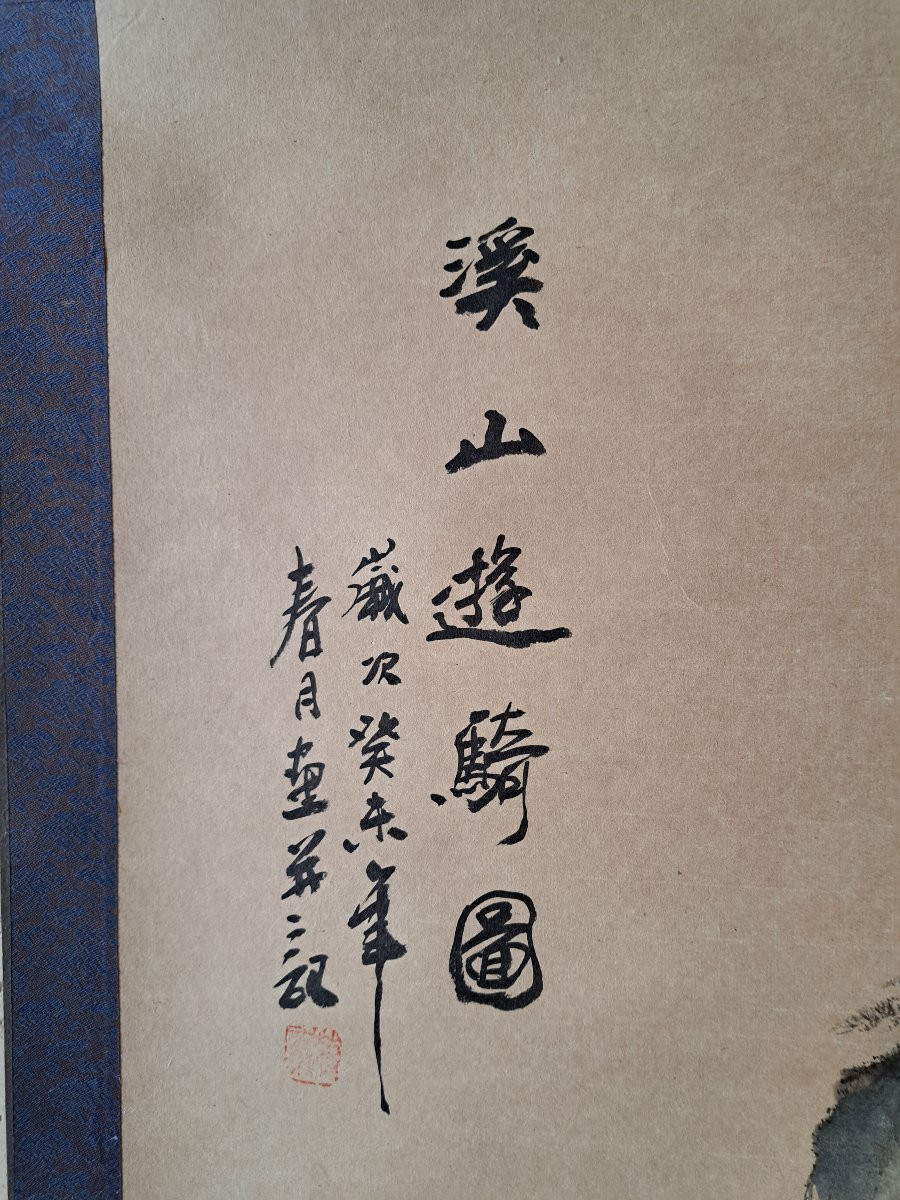 溪山遊騎圖
歲次癸未年
春月畫并記